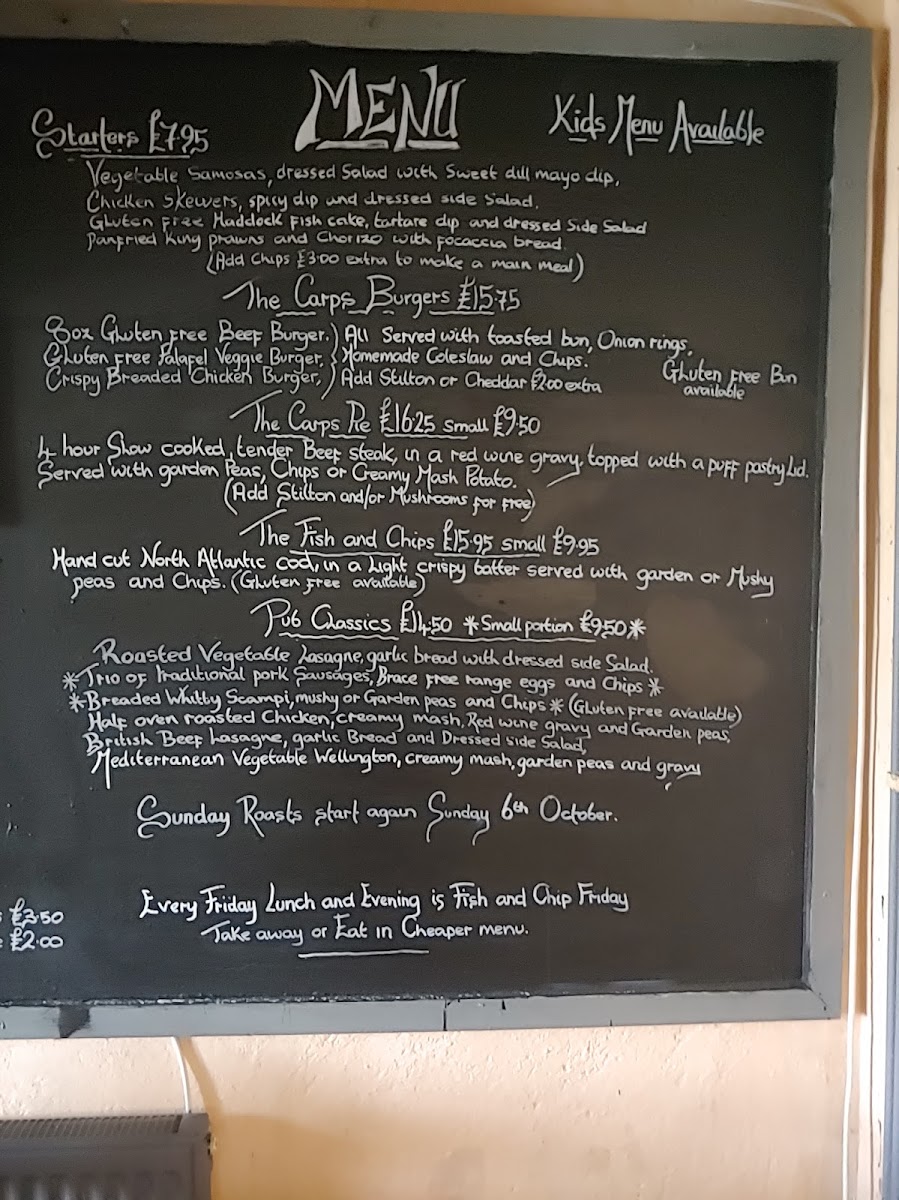 MENU
Starters £7.95
Kids Menu Available
Vegetable Samosas, dressed Salad with Sweet dill mayo dip,
Chicken Skewers, spicy dip and dressed side Salad.
Gluten Free Haddock Fish cake, tartare dip and dressed Side Salad
Panfried King prawns and Chorizo with focaccia bread.
(Add Chips £3.00 extra to make a main meal)
The Carps Burgers £15.75
8oz Gluten Free Beef Burger. } All Served with toasted bun, Onion rings,
Gluten Free Falafel Veggie Burger, } Homemade Coleslaw and Chips.
Crispy Breaded Chicken Burger, } Add Stilton or Cheddar £2.00 extra
Gluten Free Bun
available
The Carps Pie £16.25 small £9.50
4 hour Slow cooked, tender Beef steak, in a red wine gravy, topped with a puff pastry Lid.
Served with garden Peas, Chips or Creamy Mash Potato.
(Add Stilton and/or Mushrooms for free)
The Fish and Chips £15.95 small £9.95
Hand cut North Atlantic cod, in a Light crispy batter served with garden or Mushy
peas and Chips. (Gluten free available)
Pub Classics £14.50 *Small portion £9.50*
Roasted Vegetable Lasagne, garlic bread with dressed side Salad.
*Trio of Traditional pork Sausages, Brace free range eggs and Chips*
*Breaded Whitby Scampi, mushy or Garden peas and Chips* (Gluten Free available)
Half oven roasted Chicken, creamy mash, Red wine gravy and Garden peas,
British Beef Lasagne, garlic Bread and Dressed side Salad,
Mediterranean Vegetable Wellington, creamy mash, garden peas and gravy
Sunday Roasts start again Sunday 6th October.
£3.50
£2.00
Every Friday Lunch and Evening is Fish and Chip Friday
Take away or Eat in Cheaper menu.